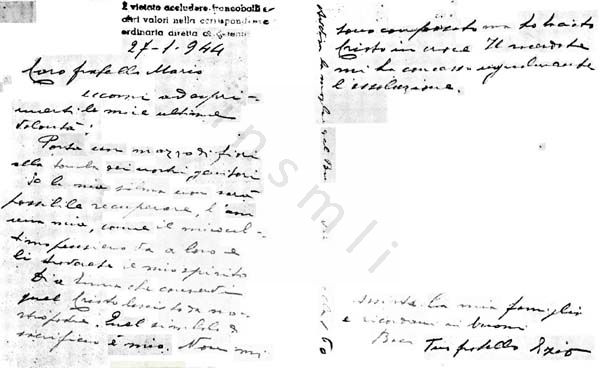 È vietato accludere francobolli ed
altri valori nella corrispondenza
ordinaria diretta ai
27-1-944
Caro fratello Mario
eccomi ad espri-
merti le mie ultime
volontà:
Porta un mazzo di fiori
alla tomba dei nostri genitori
Se la mia salma non sarà
possibile recuperare, l'ani
ma mia, come il mio ul-
timo pensiero va a loro e
lì troverete il mio spirito
Di a che conservi
quel Cristo
Quel simbolo di
sacrificio è mio. Non mi
sono ma ho baciato
Cristo in croce Il sacerdote
mi ha concesso ugualmente
l'assoluzione.
Assisti la mia famiglia
e ricordami ai buoni
Baci Tuo fratello Ezio
insmli